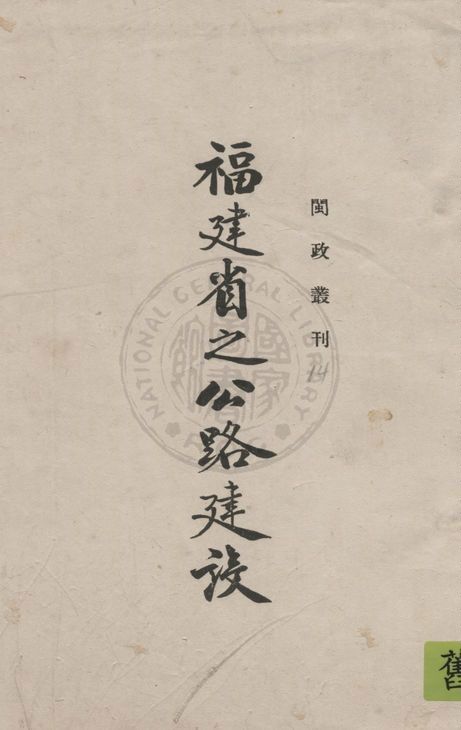 閩政叢刊
14
福建省之公路建設
NATIONAL CENTRAL LIBRARY
國家圖書館
舊